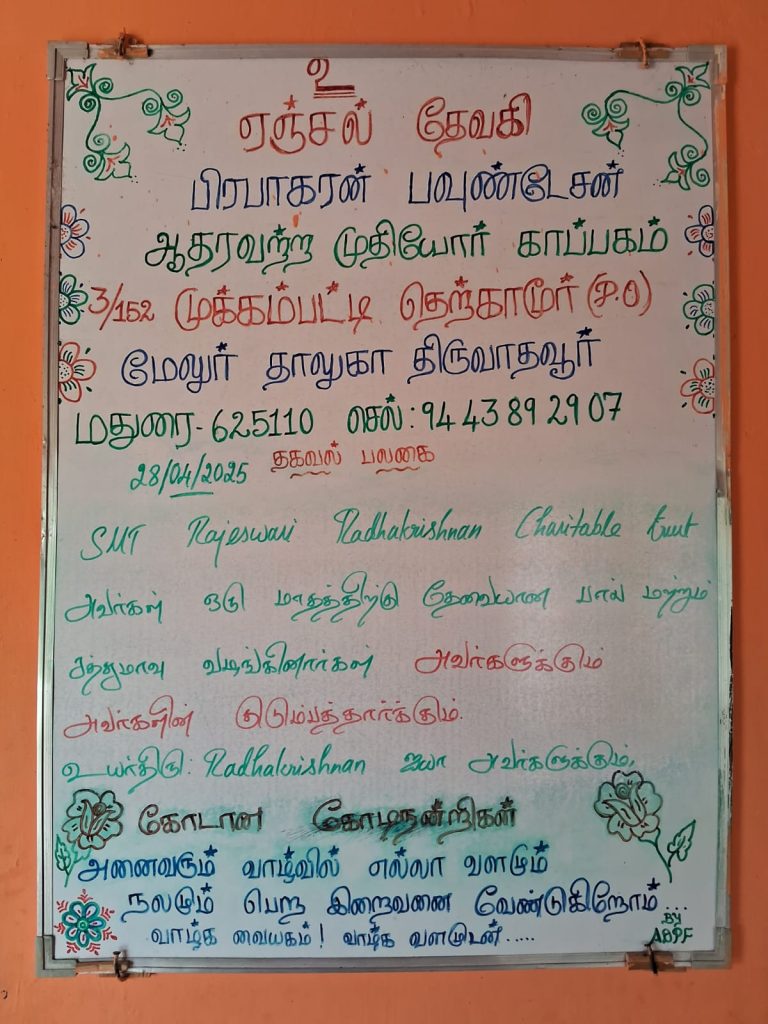 உ
ஏஞ்சல் தேவகி
பிரபாகரன் பவுண்டேசன்
ஆதரவற்ற முதியோர் காப்பகம்
3/152 முக்கம்பட்டி தெற்காமூர் (P.O)
மேலுர் தாலுகா திருவாதவூர்
மதுரை- 625110 செல்: 94 43 89 29 07
தகவல் பலகை
28/04/2025
SMT Rajeswari Radhakrishnan Charitable trust
அவர்கள் ஒரு மாதத்திற்கு தேவையான பால் மற்றும்
சத்துமாவு வழங்கினார்கள் அவர்களுக்கும்
அவர்களின் குடும்பத்தார்க்கும்.
உயர்திரு: Radhakrishnan ஐயா அவர்களுக்கும்,
கோடான கோடிநன்றிகள்
அனைவரும் வாழ்வில் எல்லா வளமும்
நலமும் பெற இறைவனை வேண்டுகிறோம்...
வாழ்க வையகம்! வாழ்க வளமுடன்.....
BY
ABPF